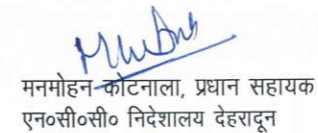 मनमोहन कोटनाला, प्रधान सहायक
एन०सी०सी० निदेशालय देहरादून